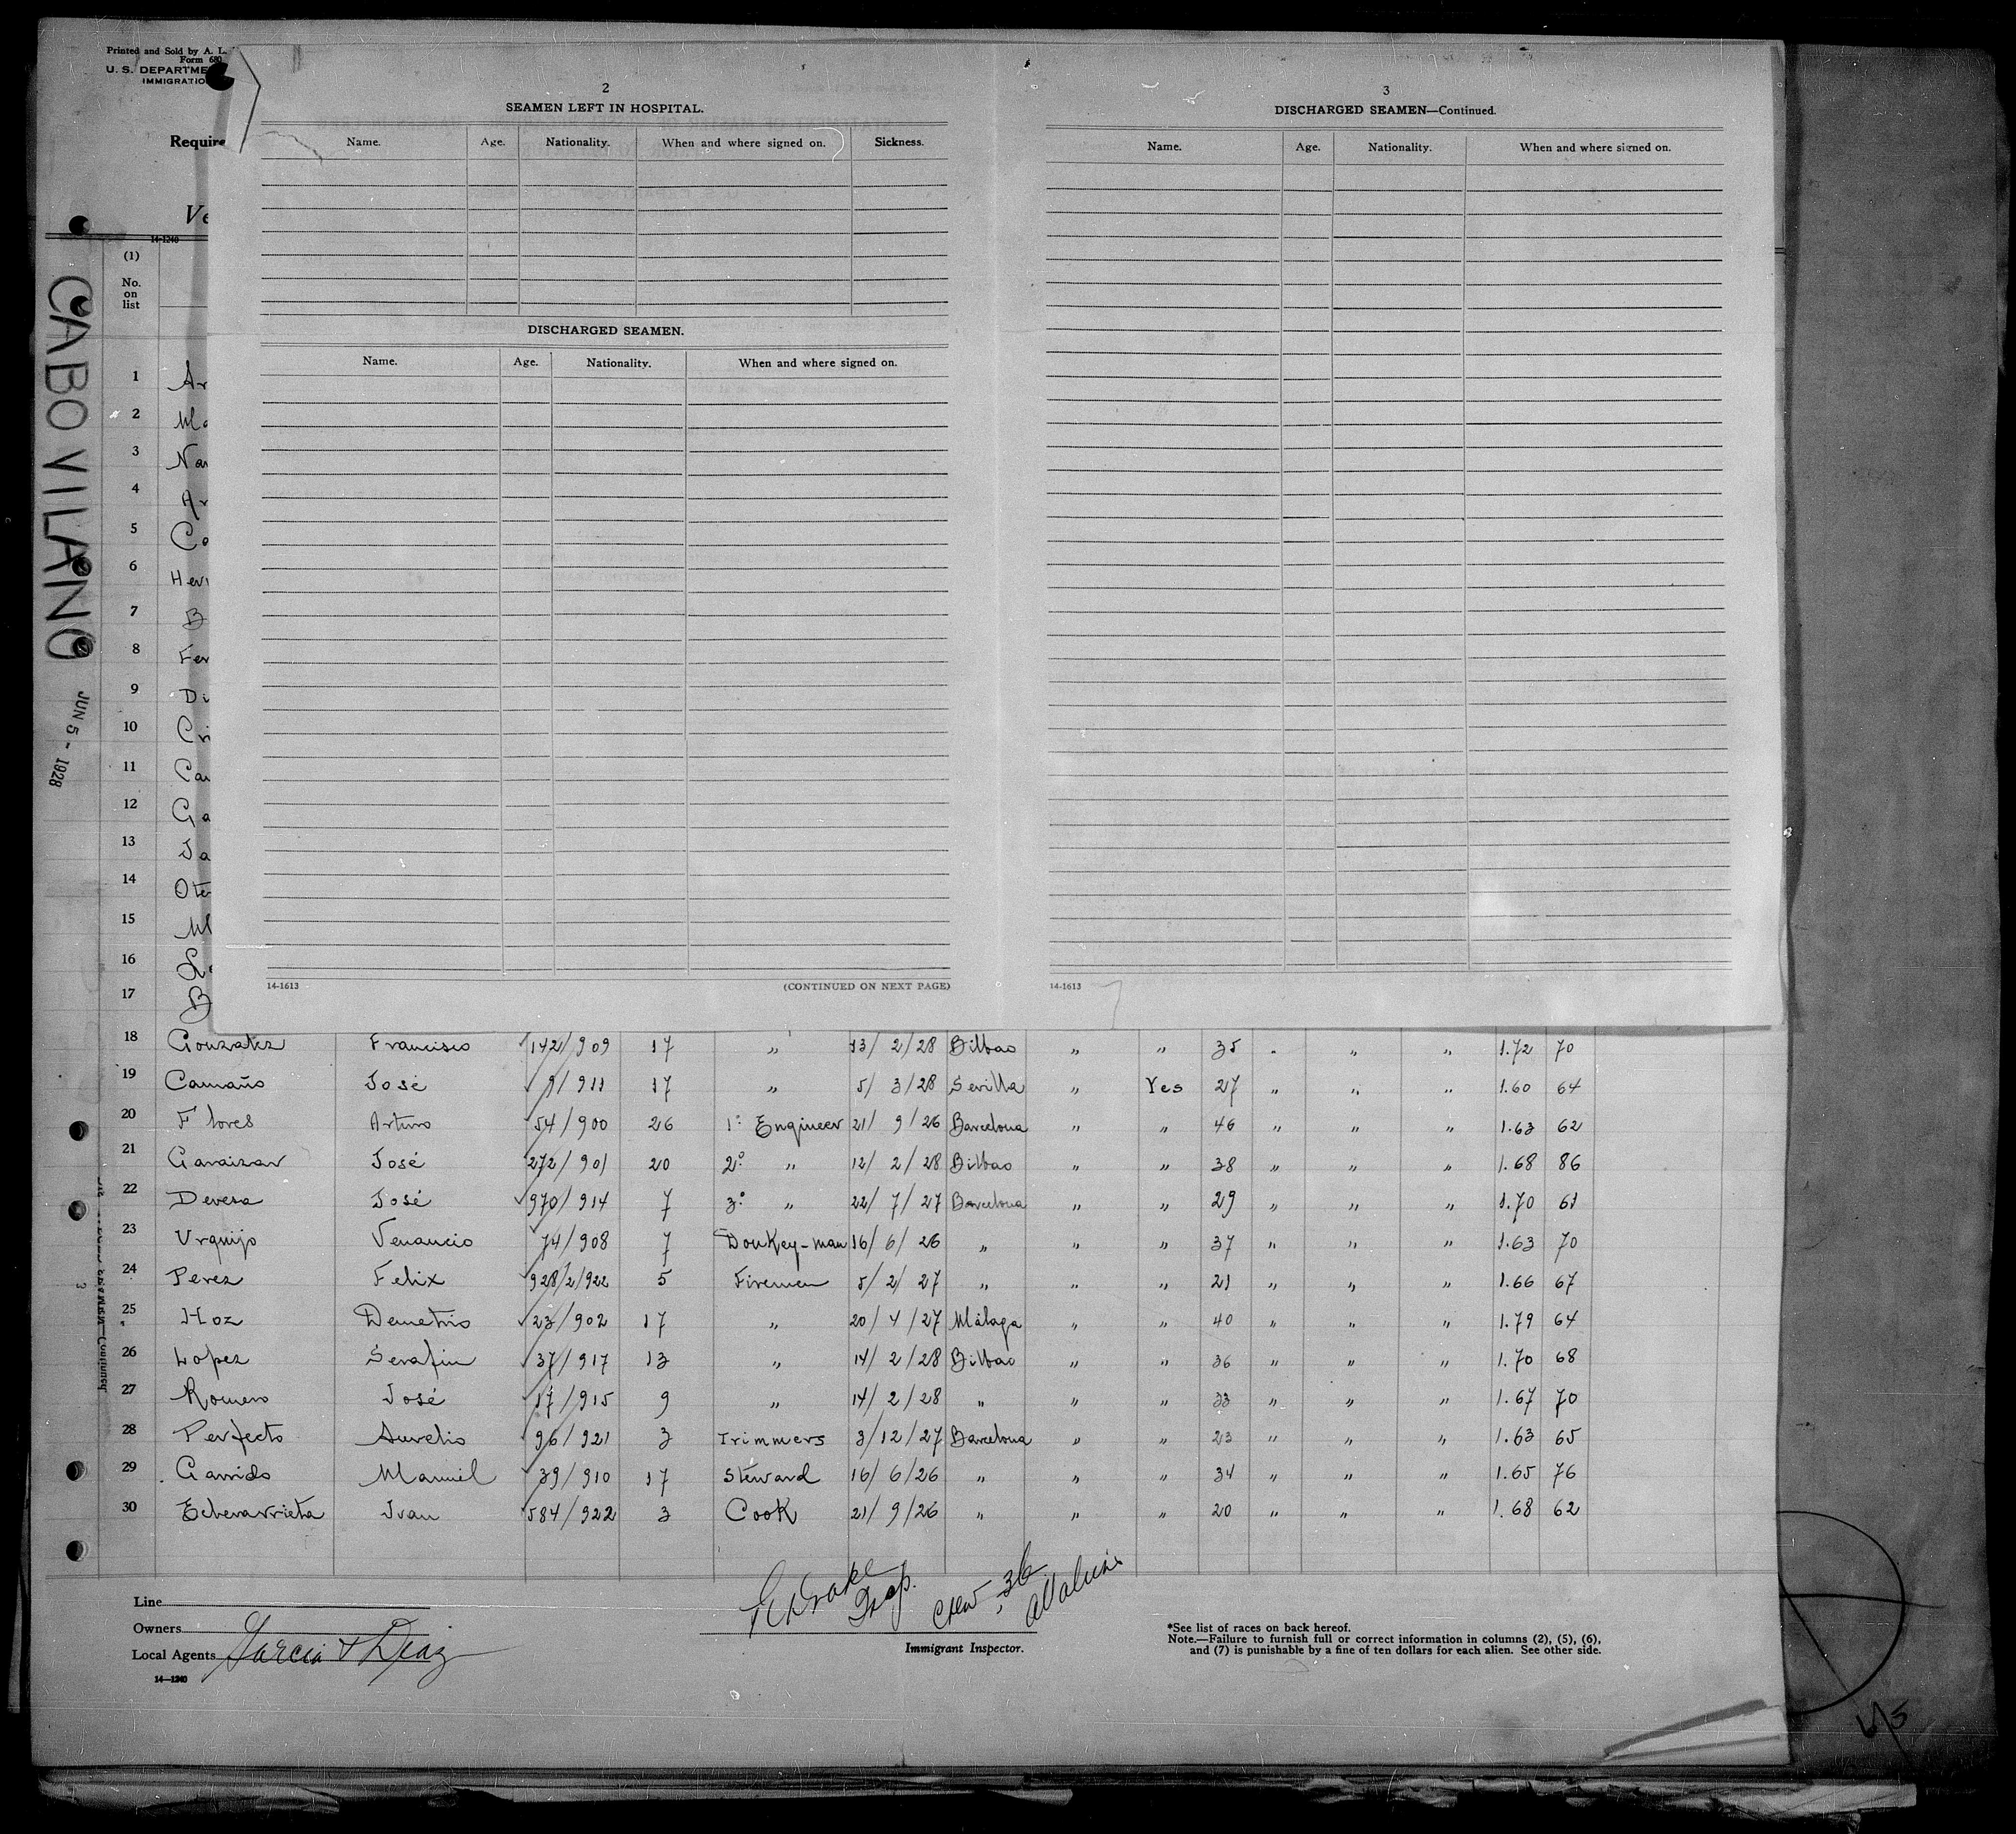 Printed and Sold by A. L.
Form 680
U. S. DEPARTME
IMMIGRATIO
Require
Ve
14-1240
(1)
No.
on
list
CABO VILANO
JUN 5 - 1928
2
SEAMEN LEFT IN HOSPITAL.
Name. Age. Nationality. When and where signed on. Sickness.
DISCHARGED SEAMEN.
Name. Age. Nationality. When and where signed on.
14-1613 (CONTINUED ON NEXT PAGE)
3
DISCHARGED SEAMEN—Continued.
Name. Age. Nationality. When and where signed on.
14-1613
1 Ar
2 Ma
3 Nav
4 Ar
5 Co
6 Her
7 B
8 Fer
9 Di
10 Cri
11 Car
12 Ga
13 Ja
14 Ote
15 M
16
17 B
18 Gonzalez Francisco 142/909 17 " 13/2/28 Bilbao " " 35 " " " 1.72 70
19 Camaño José 9/911 17 " 5/3/28 Sevilla " Yes 27 " " " 1.60 64
20 Flores Arturo 54/900 26 1º Engineer 21/9/26 Barcelona " " 46 " " " 1.63 62
21 Garaizar José 272/901 20 2º " 12/2/28 Bilbao " " 38 " " " 1.68 86
22 Devesa José 970/914 7 3º " 22/7/27 Barcelona " " 29 " " " 1.70 61
23 Urquijo Venancio 74/908 7 Donkey-man 16/6/26 " " " 37 " " " 1.63 70
24 Perez Felix 928/2/922 5 Firemen 5/2/27 " " " 21 " " " 1.66 67
25 Hoz Demetrio 23/902 17 " 20/4/27 Málaga " " 40 " " " 1.79 64
26 Lopez Serafin 37/917 13 " 14/2/28 Bilbao " " 36 " " " 1.70 68
27 Romero José 17/915 9 " 14/2/28 " " " 33 " " " 1.67 70
28 Perfecto Aurelio 96/921 3 Trimmers 3/12/27 Barcelona " " 23 " " " 1.63 65
29 Garrido Manuel 39/910 17 Steward 16/6/26 " " " 34 " " " 1.65 76
30 Echevarrieta Juan 584/922 3 Cook 21/9/26 " " " 20 " " " 1.68 62
Line
Owners
Local Agents Garcia & Diaz
14—1240
Drake Insp. Crew - 36
Immigrant Inspector.
*See list of races on back hereof.
Note.—Failure to furnish full or correct information in columns (2), (5), (6),
and (7) is punishable by a fine of ten dollars for each alien. See other side.
6/5